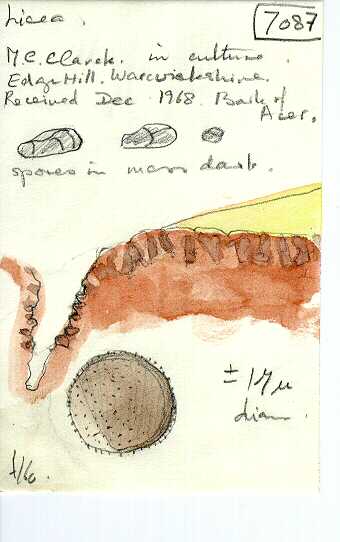 Licea.
7087
M.C. Clark. in culture.
Edge Hill. Warwickshire.
Received Dec 1968. Bark of
Acer.
spores in mass dark.
± 17 µ
diam.